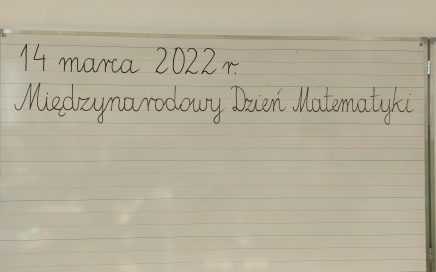 14 marca 2022 r.
Międzynarodowy Dzień Matematyki